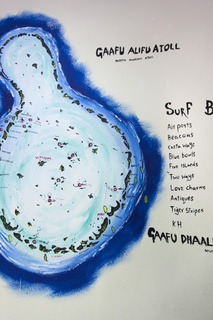 GAAFU ALIFU ATOLL
SURF B
Air ports
Beacons
Castaways
Blue Bowls
Five Islands
Two Ways
Love Charms
Antiques
Tiger Stripes
KH
GAAFU DHAAL